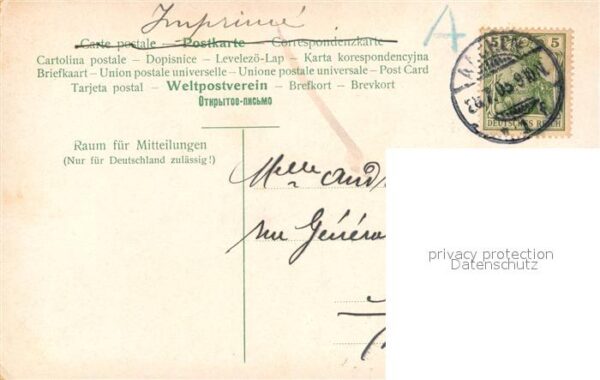 Imprimé
Carte postale – Postkarte – Correspondenzkarte
Cartolina postale – Dopisnice – Levelező-Lap – Karta korespondencyjna
Briefkaart – Union postale universelle – Unione postale universale – Post Card
Tarjeta postal – Weltpostverein – Brefkort – Brevkort
Открытое-письмо
A
5
DEUTSCHES REICH
Raum für Mitteilungen
(Nur für Deutschland zulässig!)
Melle
rue Généra
privacy protection
Datenschutz